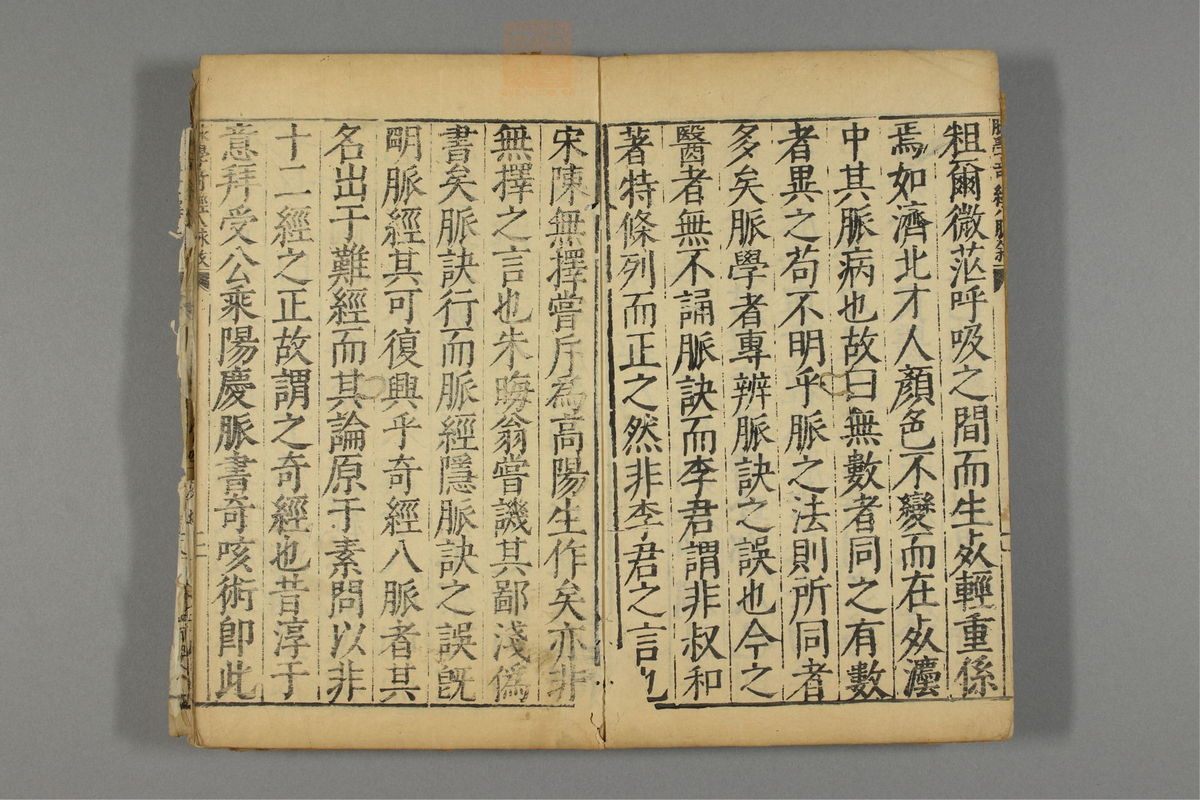 粗爾微茫呼吸之間而生死輕重係
焉如濟北才人顏色不變而在死瀍
中其脈病也故曰無數者同之有數
者異之苟不明乎脈之法則所同者
多矣脈學者專辨脈訣之誤也今之
醫者無不誦脈訣而李君謂非叔和
著特條列而正之然非李君之言也
宋陳無擇嘗斥為高陽生作矣亦非
無擇之言也朱晦翁嘗譏其鄙淺偽
書矣脈訣行而脈經隱脈訣之誤既
明脈經其可復興乎奇經八脈者其
名出于難經而其論原于素問以非
十二經之正故謂之奇經也昔淳于
意拜受公乘陽慶脈書奇咳術即此